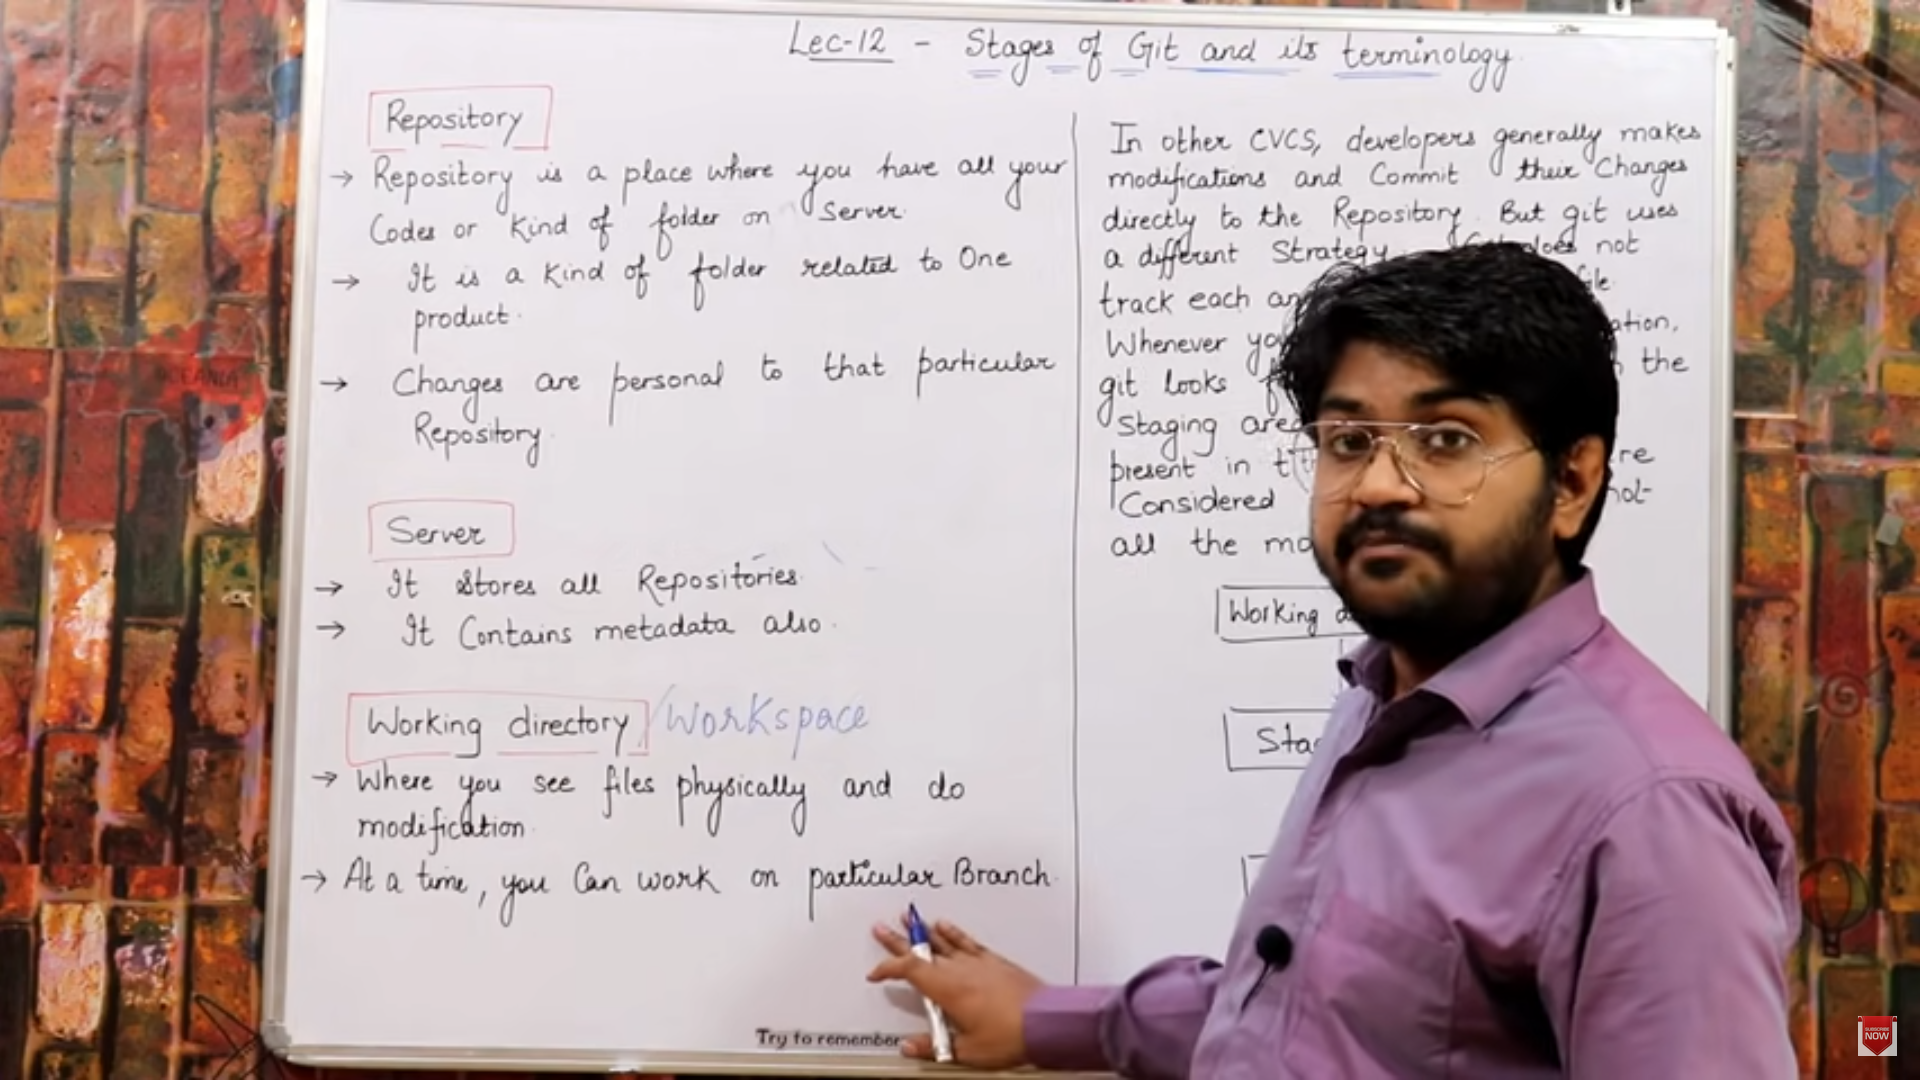 Lec-12 - Stages of Git and its terminology.
Repository
→ Repository is a place where you have all your
Codes or Kind of folder on Server.
→ It is a Kind of folder related to One
product.
→ Changes are personal to that particular
Repository.
Server
→ It Stores all Repositories.
→ It Contains metadata also.
Working directory / Workspace
→ Where you see files physically and do
modification.
→ At a time, you Can work on particular Branch.
Try to remember
In other CVCS, developers generally makes
modifications and Commit their Changes
directly to the Repository. But git uses
a different Strategy. does not
track each
Whenever
git looks the
Staging
present in
Considered
all the
Working
SUBSCRIBE
NOW